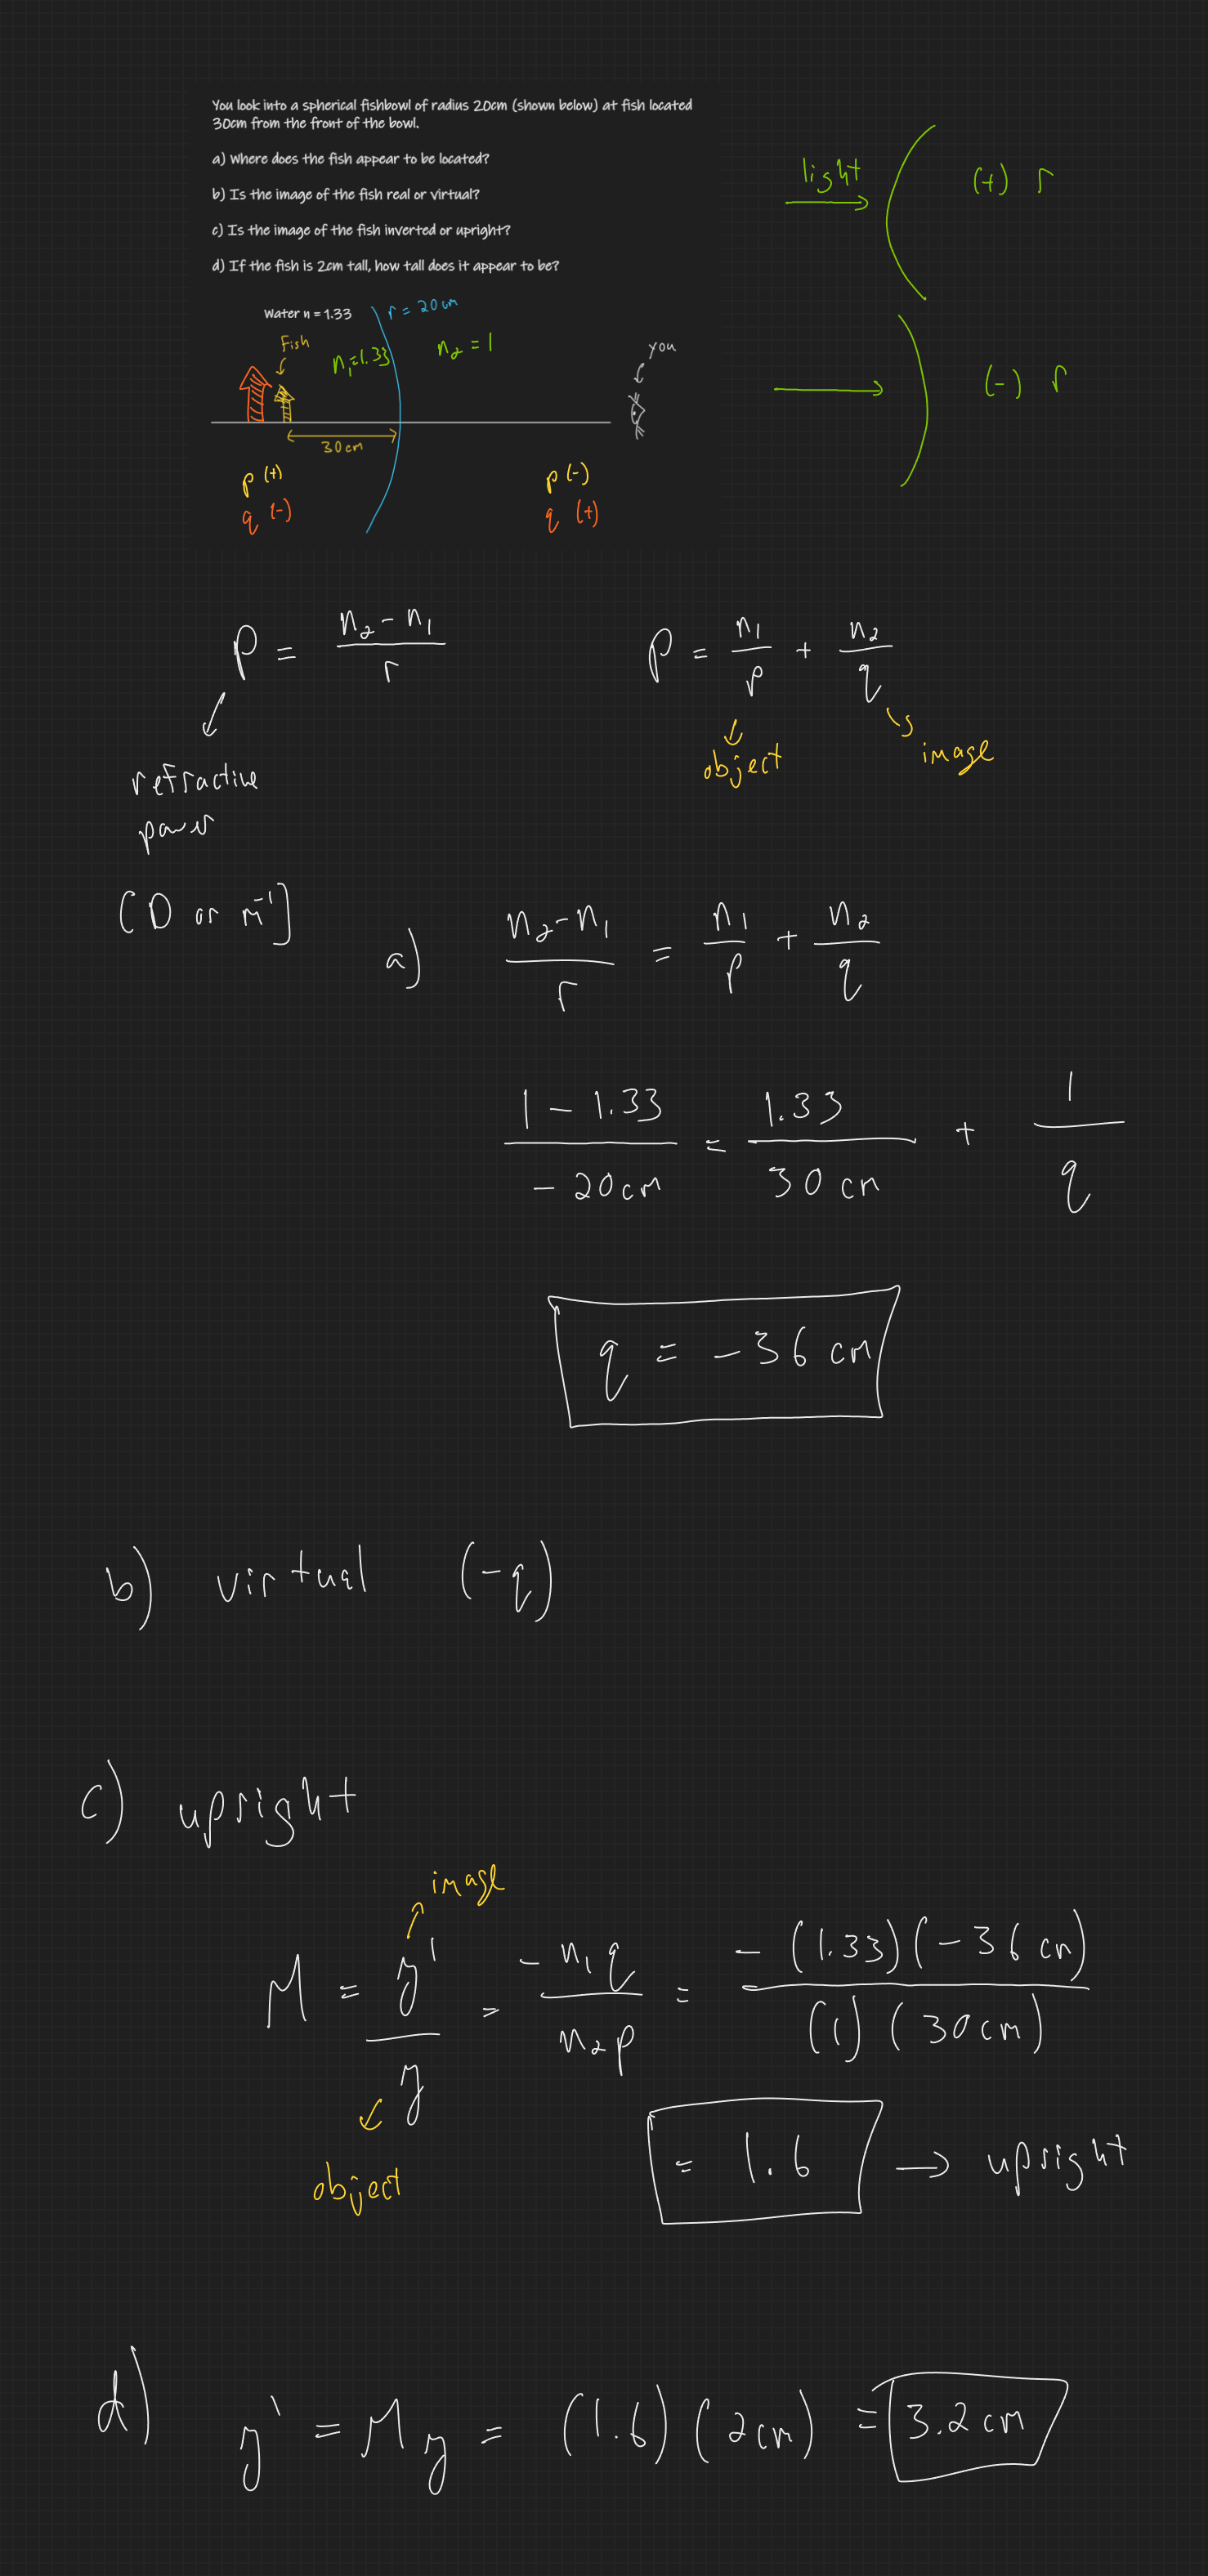 You look into a spherical fishbowl of radius 20cm (shown below) at fish located
30cm from the front of the bowl.
a) Where does the fish appear to be located?
b) Is the image of the fish real or virtual?
c) Is the image of the fish inverted or upright?
d) If the fish is 2cm tall, how tall does it appear to be?
light
(+) r
(-) r
Water n = 1.33
r = 20 cm
Fish
n₁=1.33
n₂ = 1
you
30 cm
p (+)
q (-)
p (-)
q (+)
P = (n₂ - n₁)/r
P = n₁/p + n₂/q
object
image
refractive
power
[D or m⁻¹]
a) (n₂ - n₁)/r = n₁/p + n₂/q
(1 - 1.33)/(- 20cm) = 1.33/(30 cm) + 1/q
q = - 36 cm
b) virtual (-q)
c) upright
image
M = y'/y = -n₁q/n₂p = -(1.33)(-36 cm)/(1)(30cm)
object
= 1.6 → upright
d) y' = My = (1.6)(2cm) = 3.2 cm